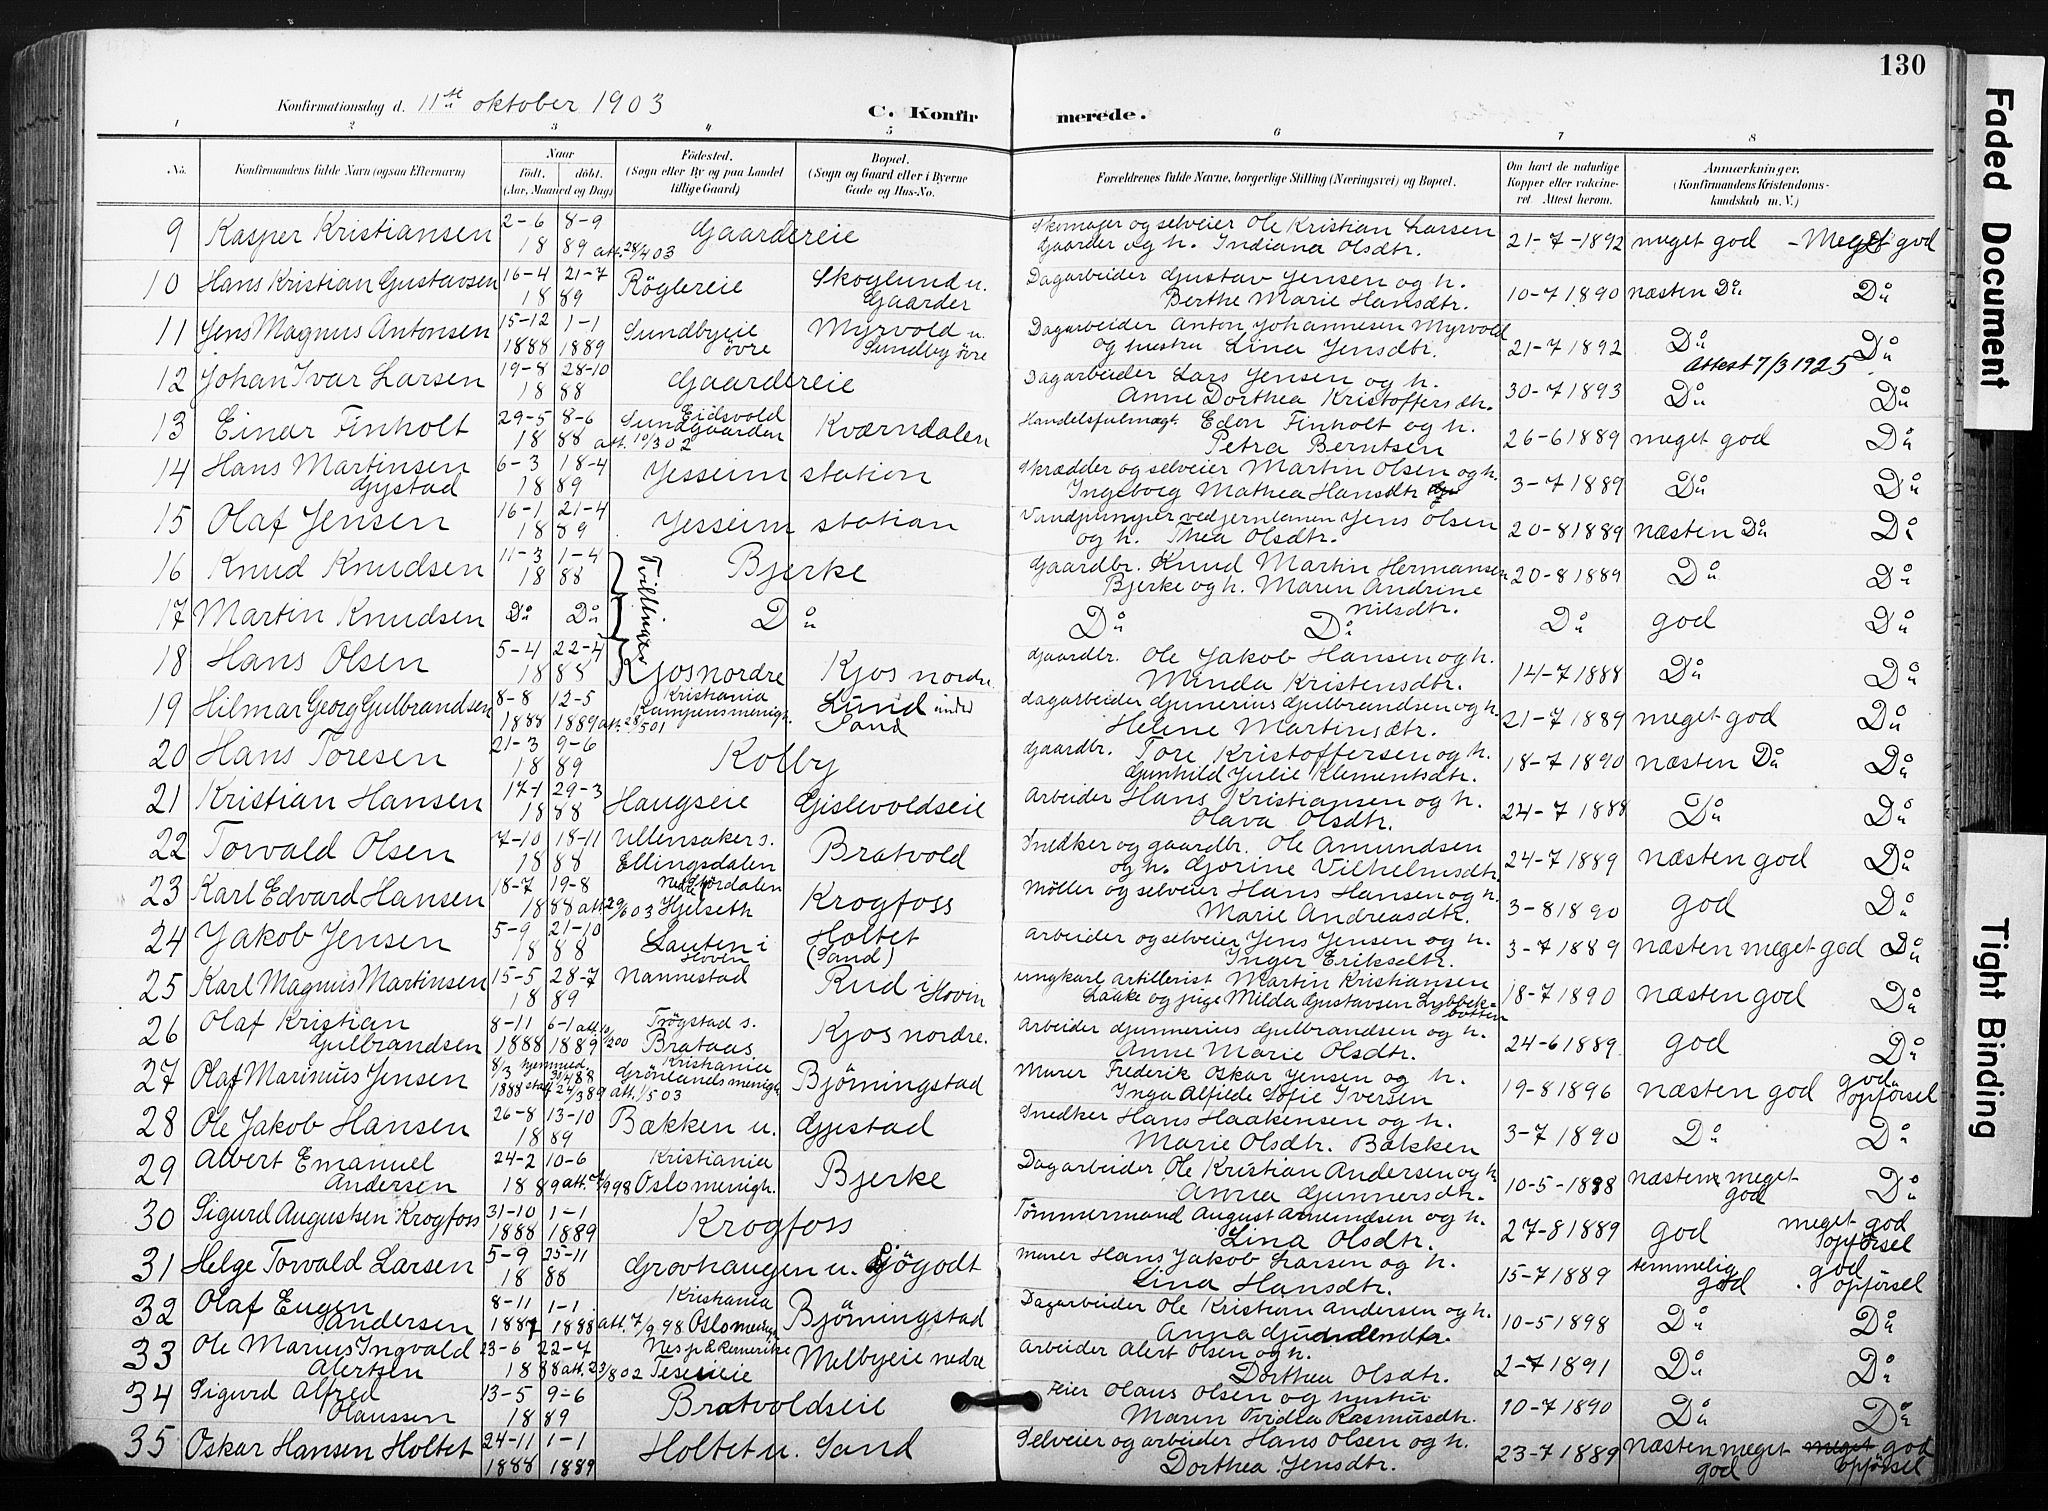 130
Konfirmationsdag d. 11te oktober 1903
C. Konfirmerede.
1 2 3 4 5 6 7 8
No. Konfirmandens fulde Navn (ogsaa Efternavn) Naar født. døbt. (Aar, Maaned og Dag) Fødested. (Sogn eller By og paa Landet tillige Gaard) Bopæl. (Sogn og Gaard eller i Byerne Gade og Hus-No. Forældrenes fulde Navne, borgerlige Stilling (Næringsvei) og Bopæl. Om havt de naturlige Kopper eller vakcineret Attest herom. Anmærkninger. (Konfirmandens Kristendomskundskab m. V.)
9 Kasper Kristiansen 2-6 8-9 1889 att. 28/4 03 Gaardereie Skomager og selveier Ole Kristian Larsen Gaarder og h. Indiana Olsdtr. 21-7-1892 meget god - Meget god
10 Hans Kristian Gustavsen 16-4 21-7 1889 Röglereie Skoglund u. Gaarder Dagarbeider Gustav Jensen og h. Berthe Marie Hansdtr. 10-7 1890 næsten Do Do
11 Jens Magnus Antonsen 15-12 1888 1-1 1889 Sundbyeie övre Myrvold u. Sundby övre Dagarbeider Anton Johannesen Myrvold og hustru Lina Jensdtr. 21-7 1892 Do Do
Attest 7/3 1925.
12 Johan Ivar Larsen 19-8 28-10 1888 Gaardereie Dagarbeider Lars Jensen og h. Anne Dorthea Kristoffersdtr. 30-7 1893 Do Do
13 Einar Finholt 29-5 8-6 1888 att. 10/3 02 Eidsvold Sundgaarden Kværndalen Handelsfulmægt. Eden Finholt og h. Petra Berntsen 26-6 1889 meget god Do
14 Hans Martinsen Gystad 6-3 18-4 1889 Jesseim station Skrædder og selveier Martin Olsen og h. Ingeborg Mathea Hansdtr 3-7 1889 Do Do
15 Olaf Jensen 16-1 21-4 1889 Jesseim station Vandpumper ved jernbanen Jens Olsen og h. Thea Olsdtr. 20-8 1889 næsten Do Do
16 Knud Knudsen 11-3 1-4 1888 Tvillinger Bjerke Gaardbr. Knud Martin Hermansen Bjerke og h. Maren Andrine Nilsdtr. 20-8 1889 Do Do
17 Martin Knudsen Do Do Do Do Do Do god Do
18 Hans Olsen 5-4 22-4 1888 Kjos nordre Kjos nordre. Gaardbr. Ole Jakob Hansen og h. Minda Kristensdtr. 14-7 1888 Do Do
19 Hilmar Georg Gulbrandsen 8-8 1888 12-5 1889 att. 28/5 01 Kristiania Kampens menigh. Lund under Sand Dagarbeider Gunerius Gulbrandsen og h. Helene Martinsdtr. 21-7 1889 meget god Do
20 Hans Toresen 21-3 9-6 1889 Kolby Gaardbr. Tore Kristoffersen og h. Gunhild Julie Klementsdtr. 18-7 1890 næsten Do Do
21 Kristian Hansen 17-1 29-3 1888 Haugseie Gislevoldseie Arbeider Hans Kristiansen og h. Olava Olsdtr. 24-7 1888 Do Do
22 Torvald Olsen 7-10 18-11 1888 Ullensaker s. Ellingsdalen Bratvold Snedker og gaardbr. Ole Amundsen og h. Gjorine Vilhelmsdtr 24-7 1889 næsten god Do
23 Karl Edvard Hansen 18-7 19-8 1888 att. 29/6 03 Hjelseth Krogfoss Möller og selveier Hans Hansen og h. Marie Andreasdtr. 3-8 1890 god Do
24 Jakob Jensen 5-9 21-10 1888 Lauten i Hoven Holtet (Sand) Arbeider og selveier Jens Jensen og h. Inger Eriksdtr. 3-7 1889 næsten meget god Do
25 Karl Magnus Martinsen 15-5 28-7 1889 Nannestad Rud i Hovin ungkarl artillerist Martin Kristiansen Laake og pige Milda Gustavsen 18-7 1890 næsten god Do
26 Olaf Kristian Gulbrandsen 8-11 1888 6-1 1889 att. Trøgstad s. Brataas Kjos nordre. Arbeider Gunnerius Gulbrandsen og h. Anne Marie Olsdtr. 24-6 1889. god Do
27 Olaf Marinius Jensen 8/3 1888 hjemmed. 31/4 88 stadf. 24/3 89 att. 1/5 03 Kristiania Grönlands menigh. Björningstad Murer Frederik Oskar Jensen og h. Inga Alfilde Sofie Iversen 19-8 1896 næsten god god opførsel
28 Ole Jakob Hansen 26-8 13-10 1889 Bækken u. Gjestad Snedker Hans Haakensen og h. Marie Olsdtr. Bækken 3-7 1890 Do Do
29 Albert Emanuel Andersen 24-2 10-6 1889 att. 7/9 98 Kristiania Oslo menigh. Bjerke Dagarbeider Ole Kristian Andersen og h Anna Gunnersdtr. 10-5-1898 næsten meget god Do
30 Sigurd Augustsen Krogfoss 31-10 1888 1-1 1889 Krogfoss Tömmermand August Amundsen og h. Lina Olsdtr. 27-8 1889 god meget god opförsel
31 Helge Torvald Larsen 5-9 25-11 1888 Grovhaugen u. Gjögodt Murer Hans Jakob Larsen og h. Lina Hansdtr. 15-7 1889 temmelig god god opførsel
32 Olaf Eugen Andersen 8-11 1887 1-1 1888 att. 7/9 98 Kristiania Oslo menigh Björningstad Dagarbeider Ole Kristian Andersen og h. Anna 10-5 1898 Do Do
33 Ole Marius Ingvald Alertsen 23-6 22-7 1888 att. 23/8 02 Nes på Romerike Teseieie Melbyeie nedre Arbeider Alert Olsen og h. Dorthea Olsdtr. 2-7 1891 Do Do
34 Sigurd Alfred Olaussen 13-5 9-6 1889 Bratvoldseie Feier Olaus Olsen og hustru Maren Ovidia Rasmusdtr. 10-7 1890 Do Do
35 Oskar Hansen Holtet 24-11 1888 1-1 1889 Holtet u. Sand Selveier og arbeider Hans Olsen og h. Dorthea Jensdtr. 23-7 1889 næsten meget god meget god opførsel
Faded Document
Tight Binding